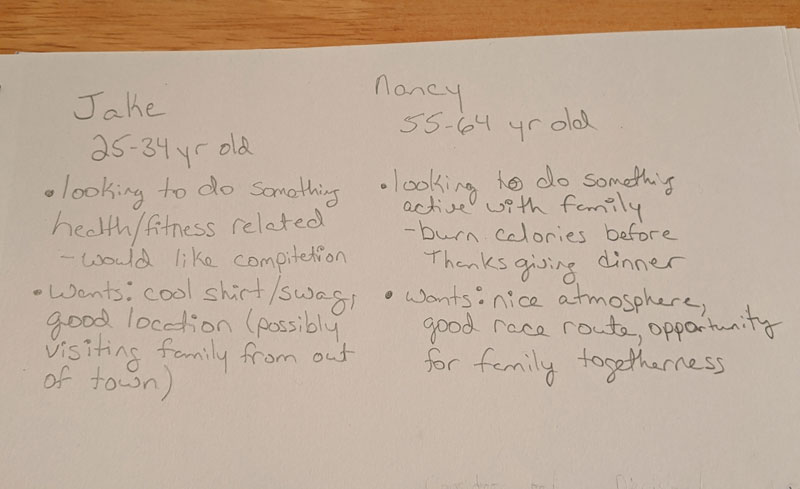 Jake
25-34 yr old
• looking to do something
health/fitness related
- would like compitetion
• Wants: cool shirt/swag,
good location (possibly
visiting family from out
of town)
Nancy
55-64 yr old
• looking to do something
active with family
- burn calories before
Thanksgiving dinner
• wants: nice atmosphere,
good race route, opportunity
for family togetherness